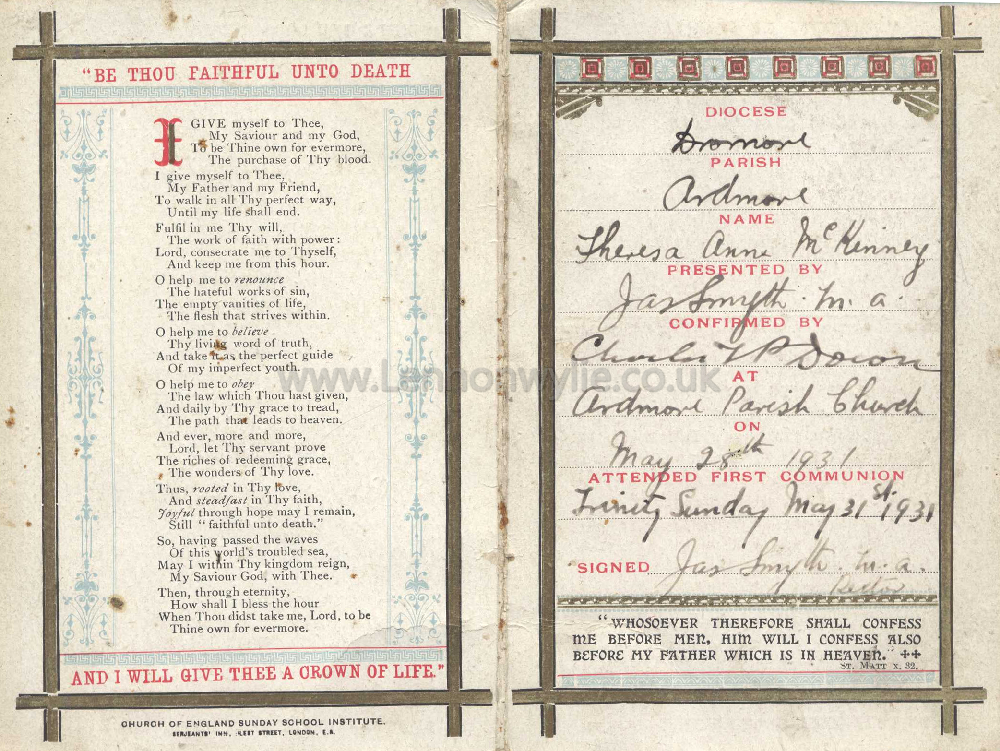 "BE THOU FAITHFUL UNTO DEATH
I GIVE myself to Thee,
My Saviour and my God,
To be Thine own for evermore,
The purchase of Thy blood.
I give myself to Thee,
My Father and my Friend,
To walk in all Thy perfect way,
Until my life shall end.
Fulfil in me Thy will,
The work of faith with power:
Lord, consecrate me to Thyself,
And keep me from this hour.
O help me to renounce
The hateful works of sin,
The empty vanities of life,
The flesh that strives within.
O help me to believe
Thy living word of truth,
And take it as the perfect guide
Of my imperfect youth.
O help me to obey
The law which Thou hast given,
And daily by Thy grace to tread,
The path that leads to heaven.
And ever, more and more,
Lord, let Thy servant prove
The riches of redeeming grace,
The wonders of Thy love.
Thus, rooted in Thy love,
And steadfast in Thy faith,
Joyful through hope may I remain,
Still "faithful unto death."
So, having passed the waves
Of this world's troubled sea,
May I within Thy kingdom reign,
My Saviour God, with Thee.
Then, through eternity,
How shall I bless the hour
When Thou didst take me, Lord, to be
Thine own for evermore.
AND I WILL GIVE THEE A CROWN OF LIFE."
CHURCH OF ENGLAND SUNDAY SCHOOL INSTITUTE.
SERJEANTS' INN, FLEET STREET, LONDON, E.C.
DIOCESE
Dromore
PARISH
Ardmore
NAME
Theresa Anne McKinney
PRESENTED BY
Jas Smyth. M.a.
CONFIRMED BY
Charles T P
AT
Ardmore Parish Church
ON
May 28th 1931
ATTENDED FIRST COMMUNION
Trinity Sunday May 31st 1931
SIGNED Jas Smyth. M.a.
Rector
"WHOSOEVER THEREFORE SHALL CONFESS
ME BEFORE MEN, HIM WILL I CONFESS ALSO
BEFORE MY FATHER WHICH IS IN HEAVEN."
ST. MATT X. 32.
www.Lennonwylie.co.uk